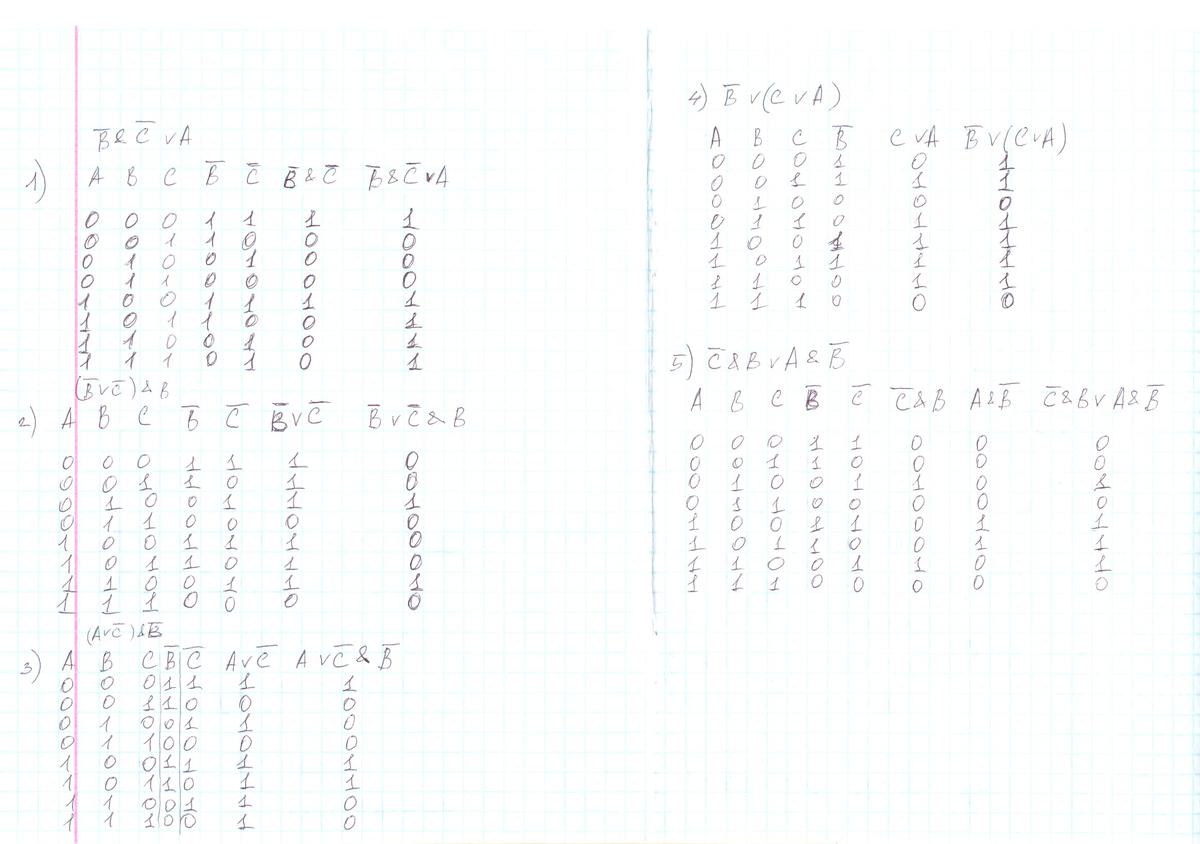 B̅ & C̅ ∨ A
1) A B C B̅ C̅ B̅ & C̅ B̅ & C̅ ∨ A
0 0 0 1 1 1 1
0 0 1 1 0 0 0
0 1 0 0 1 0 0
0 1 1 0 0 0 0
1 0 0 1 1 1 1
1 0 1 1 0 0 1
1 1 0 0 1 0 1
1 1 1 0 1 0 1
(B̅ ∨ C̅) & B
2) A B C B̅ C̅ B̅ ∨ C̅ B̅ ∨ C̅ & B
0 0 0 1 1 1 0
0 0 1 1 0 1 0
0 1 0 0 1 1 1
0 1 1 0 0 0 0
1 0 0 1 1 1 0
1 0 1 1 0 1 0
1 1 0 0 1 1 1
1 1 1 0 0 0 0
(A ∨ C̅) & B̅
3) A B C B̅ C̅ A ∨ C̅ A ∨ C̅ & B̅
0 0 0 1 1 1 1
0 0 1 1 0 0 0
0 1 0 0 1 1 0
0 1 1 0 0 0 0
1 0 0 1 1 1 1
1 0 1 1 0 1 1
1 1 0 0 1 1 0
1 1 1 0 0 1 0
4) B̅ ∨ (C ∨ A)
A B C B̅ C ∨ A B̅ ∨ (C ∨ A)
0 0 0 1 0 1
0 0 1 1 1 1
0 1 0 0 0 0
0 1 1 0 1 1
1 0 0 1 1 1
1 0 1 1 1 1
1 1 0 0 1 1
1 1 1 0 0 0
5) C̅ & B ∨ A & B̅
A B C B̅ C̅ C̅ & B A & B̅ C̅ & B ∨ A & B̅
0 0 0 1 1 0 0 0
0 0 1 1 0 0 0 0
0 1 0 0 1 1 0 1
0 1 1 0 0 0 0 0
1 0 0 1 1 0 1 1
1 0 1 1 0 0 1 1
1 1 0 0 1 1 0 1
1 1 1 0 0 0 0 0